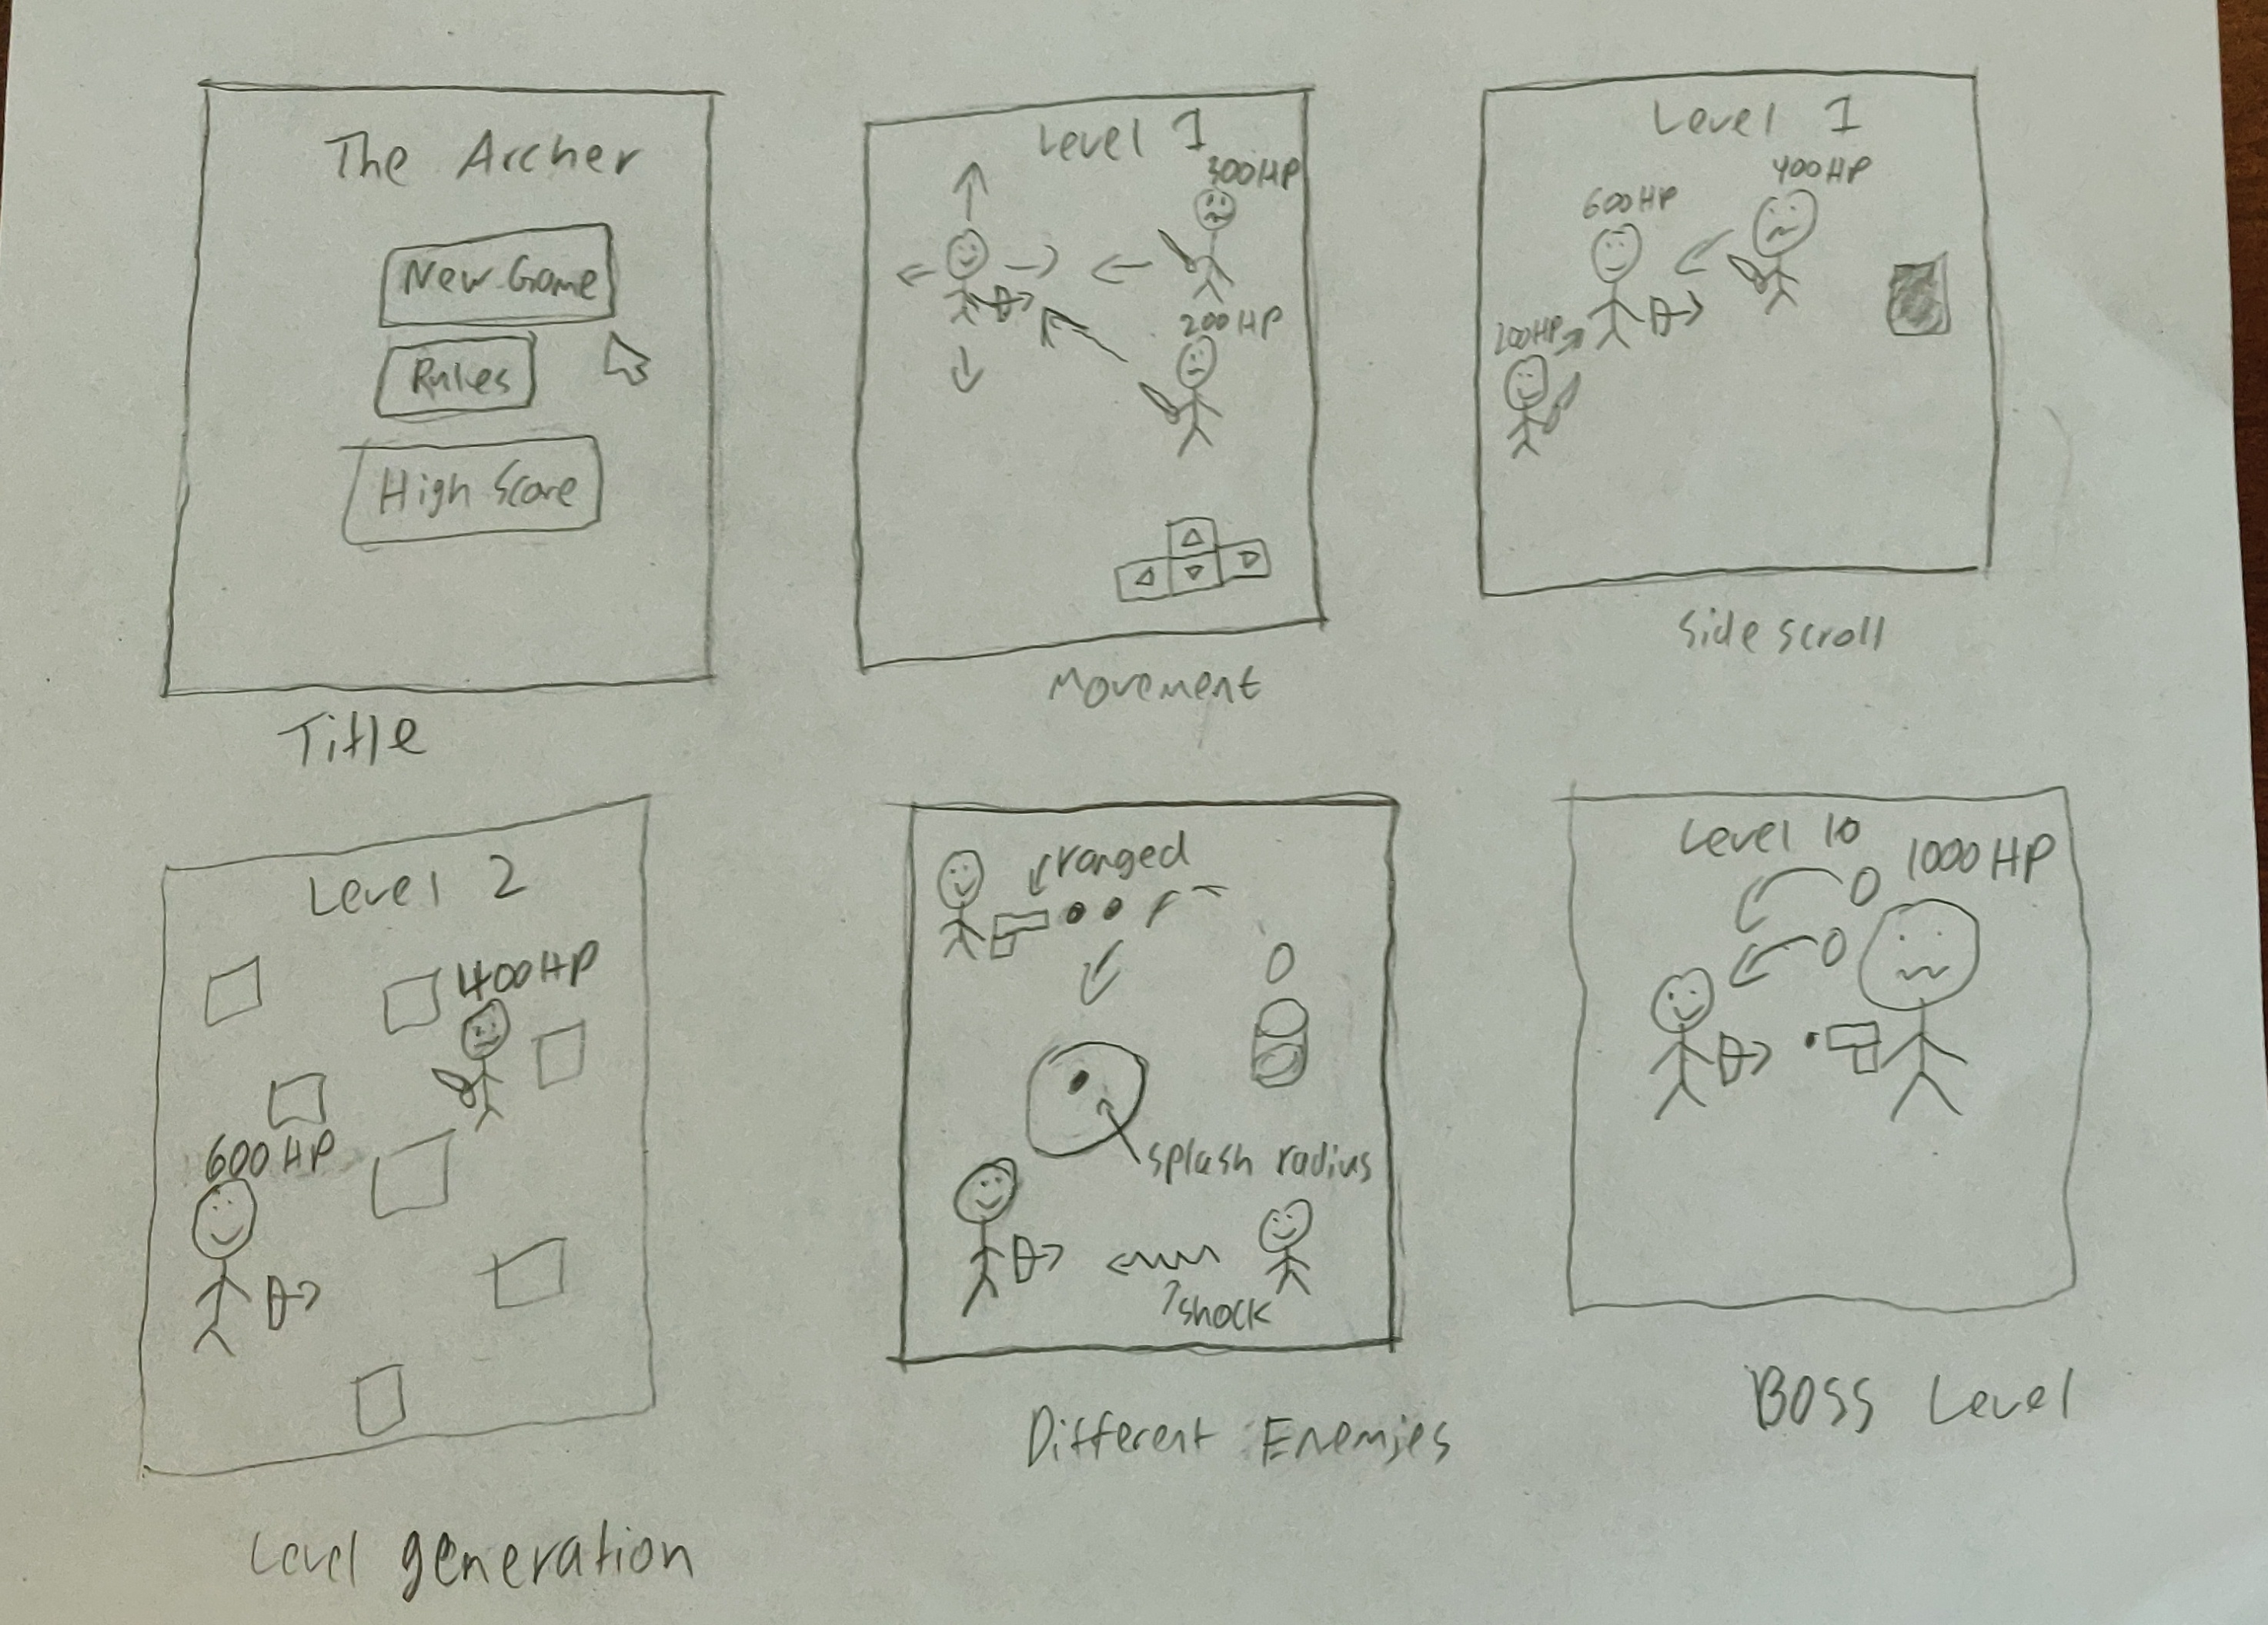 The Archer
New Game
Rules
High Score
Title
Level 1
300HP
200HP
Movement
Level 1
400HP
600HP
200HP
Side scroll
Level 2
400HP
600HP
Level generation
ranged
splash radius
shock
Different Enemies
Level 10
1000HP
Boss Level